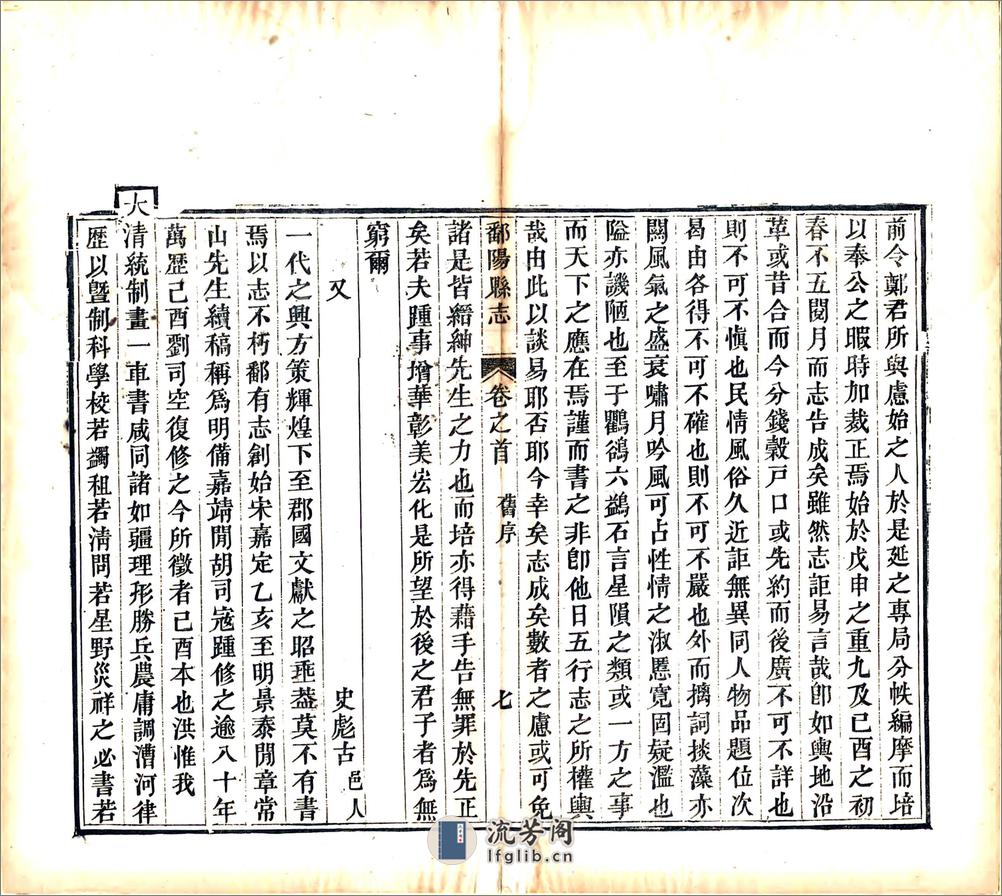 前令鄭君所與慮始之人於是延之專局分帙編摩而培
以奉公之暇時加裁正焉始於戊申之重九及己酉之初
春不五閱月而志告成矣雖然志詎易言哉卽如輿地沿
革或昔合而今分錢穀戸口或先約而後廣不可不詳也
則不可不愼也民情風俗久近詎無異同人物品題位次
曷由各得不可不確也則不可不嚴也外而摛詞掞藻亦
關風氣之盛衰嘯月吟風可占性情之淑慝寛固疑濫也
隘亦譏陋也至于鸜鵒六鷁石言星隕之類或一方之事
而天下之應在焉謹而書之非卽他日五行志之所權輿
哉由此以談易耶否耶今幸矣志成矣數者之慮或可免
鄱陽縣志 卷之首 舊序 七
諸是皆縉紳先生之力也而培亦得藉手告無罪於先正
矣若夫踵事增華彰美宏化是所望於後之君子者爲無
窮爾
又 史彪古 邑人
一代之興方策輝煌下至郡國文獻之昭垂葢莫不有書
焉以志不朽鄱有志創始宋嘉定乙亥至明景泰閒章常
山先生續稿稱爲明備嘉靖閒胡司寇踵修之逾八十年
萬歷己酉劉司空復修之今所徵者己酉本也洪惟我
大淸統制畫一車書咸同諸如疆理形勝兵農庸調漕河律
歷以曁制科學校若蠲租若淸問若星野災祥之必書若
流芳阁
lfglib.cn